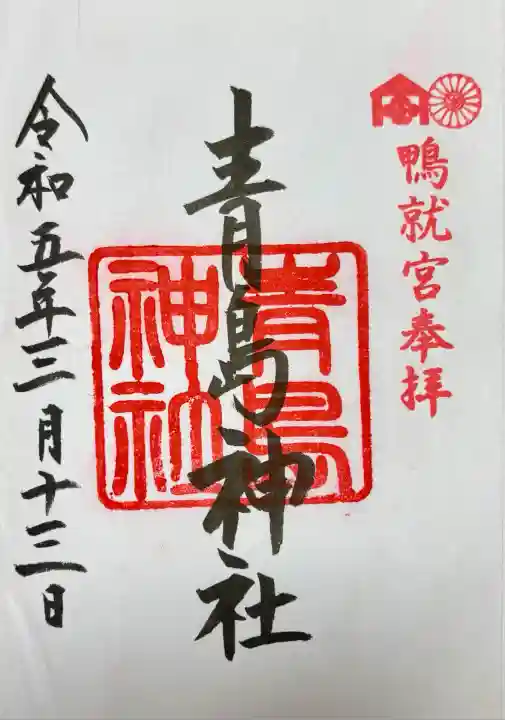 鴨就宮奉拝
青島神社
青島
神社
令和五年三月十三日